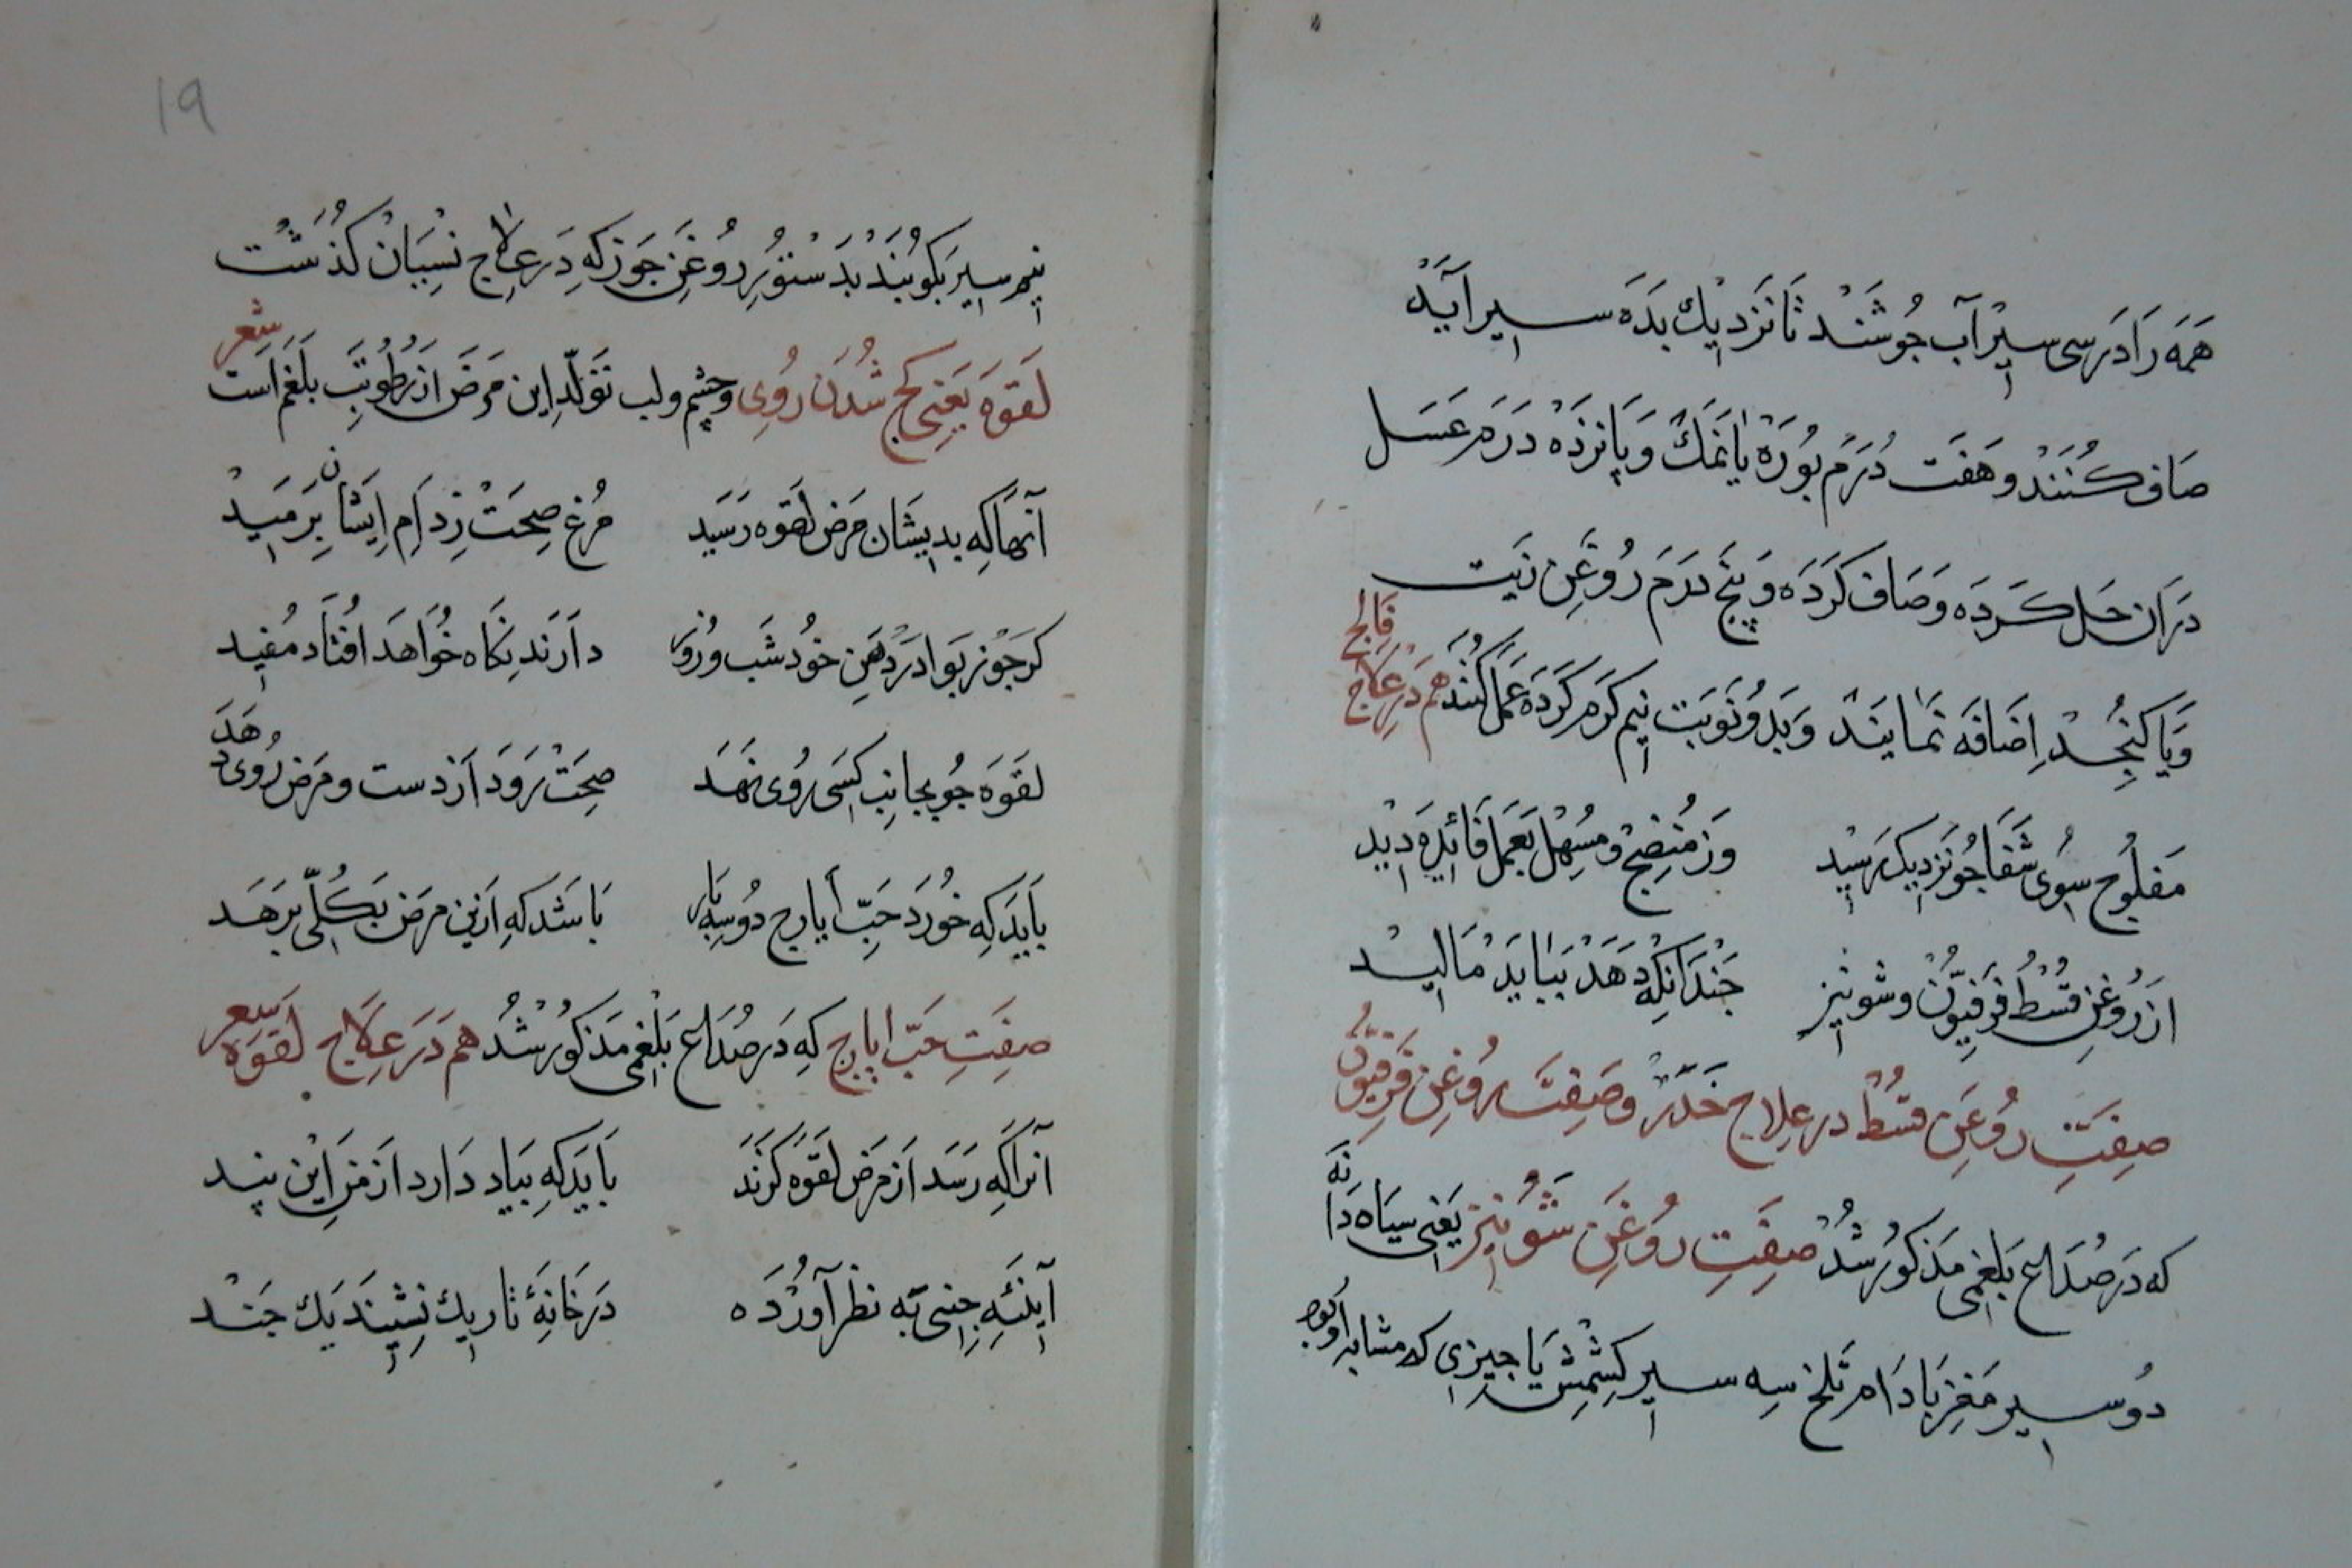 همه را در سی سیر آب جوشند تا نزدیك بده سیر آید
صاف كنند و هفت درم بوره یا نمك و پانزده درم عسل
در ان حل كرده و صاف كرده و پنج درم روغن زیت
و یا كنجد اضافه نمایند و بدو نوبت نیم كرم كرده عمل كنند هم در علاج فالج
مفلوج سوی شفا جو نزدیك رسید وز منضج و مسهل بعمل فائده دید
از روغن قسط فرفیون و شونیز جندانكه دهد بباید مالید
صفت روغن قسط در علاج خدر و صفت روغن فرفیون
كه در صداع بلغمی مذكور شد صفت روغن شونیز یعنی سیاه دانه
دو سیر مغز بادام تلخ سه سیر كشمش یا جیزی كه مشابه او بود
۱۹
نیم سیر بكوبند بدستور روغن جوز كه در علاج نسیان كذشت
لقوه یعنی كج شدن روی و چشم و لب تولد این مرض از رطوبت بلغم است شعر
آنها كه بدیشان مرض لقوه رسید مرغ صحت ز دام ایشان برمید
كر جوز بوا در دهن خود شب و روز دارند نكاه خواهد افتاد مفید
لقوه جو بجانب كسی روی نهد صحت رود از دست و مرض روی دهد
باید كه خورد حب أیارج دو سه بار باشد كه ازین مرض بكلی برهد
صفت حب ایارج كه در صداع بلغمی مذكور شد هم در علاج لقوه شعر
آنرا كه رسد از مرض لقوه كزند باید كه بیاد دارد از من این پند
آینئه جنی به نظر آورده در خانهٔ تاریك نشیند یك جند